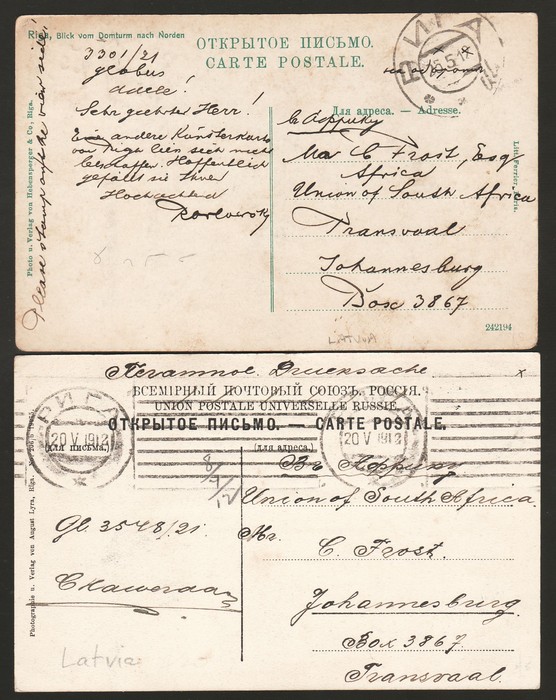 Riga, Blick vom Domturm nach Norden
ОТКРЫТОЕ ПИСЬМО.
CARTE POSTALE.
РИГА
Please stamp on the view side!
Photo u. Verlag von Hebensperger & Co., Riga.
3301/21
globus
Sehr geehrter Herr!
andere Künstlerkarte
von Riga
Hoffentlich
gefällt sie Ihnen
Для адреса. — Adresse.
Въ Африку
C Frost, Esq
Africa
Union of South Africa
Transvaal
Johannesburg
Box 3867
LATVIA
242194
Печатное. Drucksache
x
ВСЕМІРНЫЙ ПОЧТОВЫЙ СОЮЗЪ. РОССІЯ.
UNION POSTALE UNIVERSELLE RUSSIE.
ОТКРЫТОЕ ПИСЬМО. — CARTE POSTALE.
(для письма.)
(для адреса.)
РИГА
20 V 1912
20 V 1912
Photographie u. Verlag von August Lyra, Riga.
Gl. 3548/21.
Въ Африку
Union of South Africa.
Mr.
C. Frost.
Johannesburg.
Box 3867.
Transvaal.
Latvia